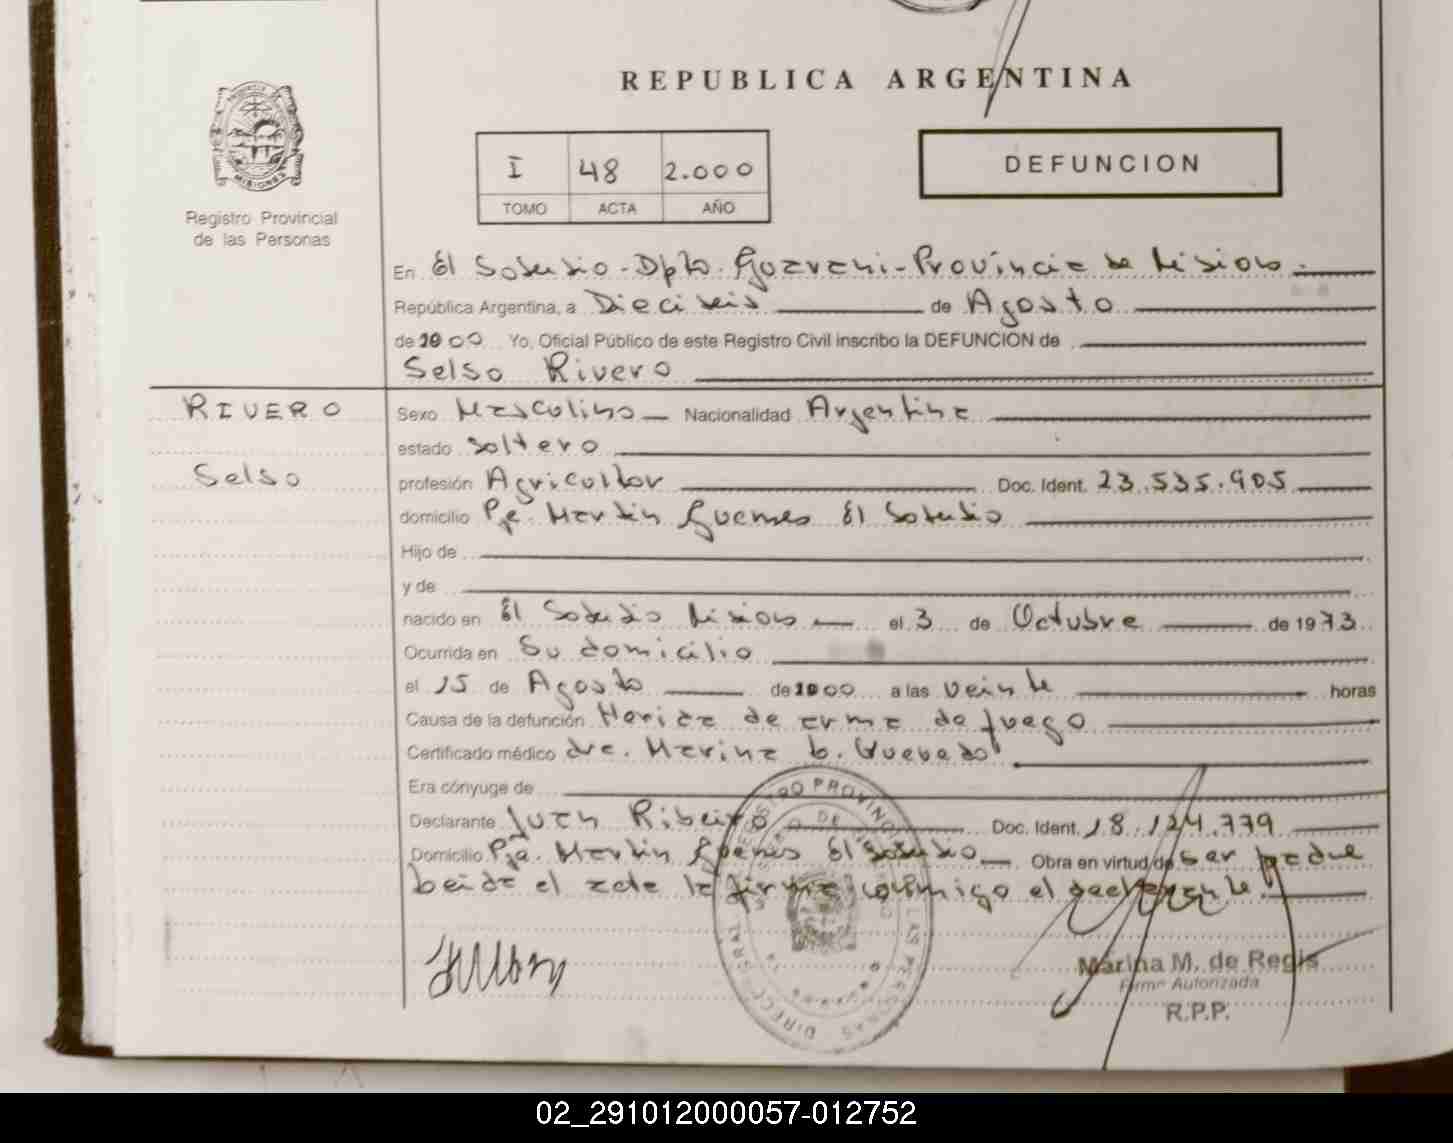 REPUBLICA ARGENTINA
PROVINCIA DE
MISIONES
Registro Provincial
de las Personas
I 48 2.000
TOMO ACTA AÑO
DEFUNCION
En El Soberbio - Dpto. Guarani - Provincia de Misiones.
República Argentina, a Dieciseis de Agosto
de 2000 Yo, Oficial Público de este Registro Civil inscribo la DEFUNCION de
Selso Rivero
RIVERO
Selso
Sexo Masculino Nacionalidad Argentina
estado Soltero
profesión Agricultor Doc. Ident. 23.535.905
domicilio Pje. Martin Guemes El Soberbio
Hijo de
y de
nacido en El Soberbio Misiones el 3 de Octubre de 1973
Ocurrida en Su domicilio
el 15 de Agosto de 2000 a las veinte horas
Causa de la defunción Herida de arma de fuego
Certificado médico dra. Marina b. Quevedo
Era cónyuge de
Declarante Juan Ribeiro Doc. Ident. 18.124.779
Domicilio Pje. Martin Guemes El Soberbio Obra en virtud de ser padre
leida el acta la firma conmigo el declarante.
Marina M. de Regis
Firma Autorizada
R.P.P.
02_291012000057-012752